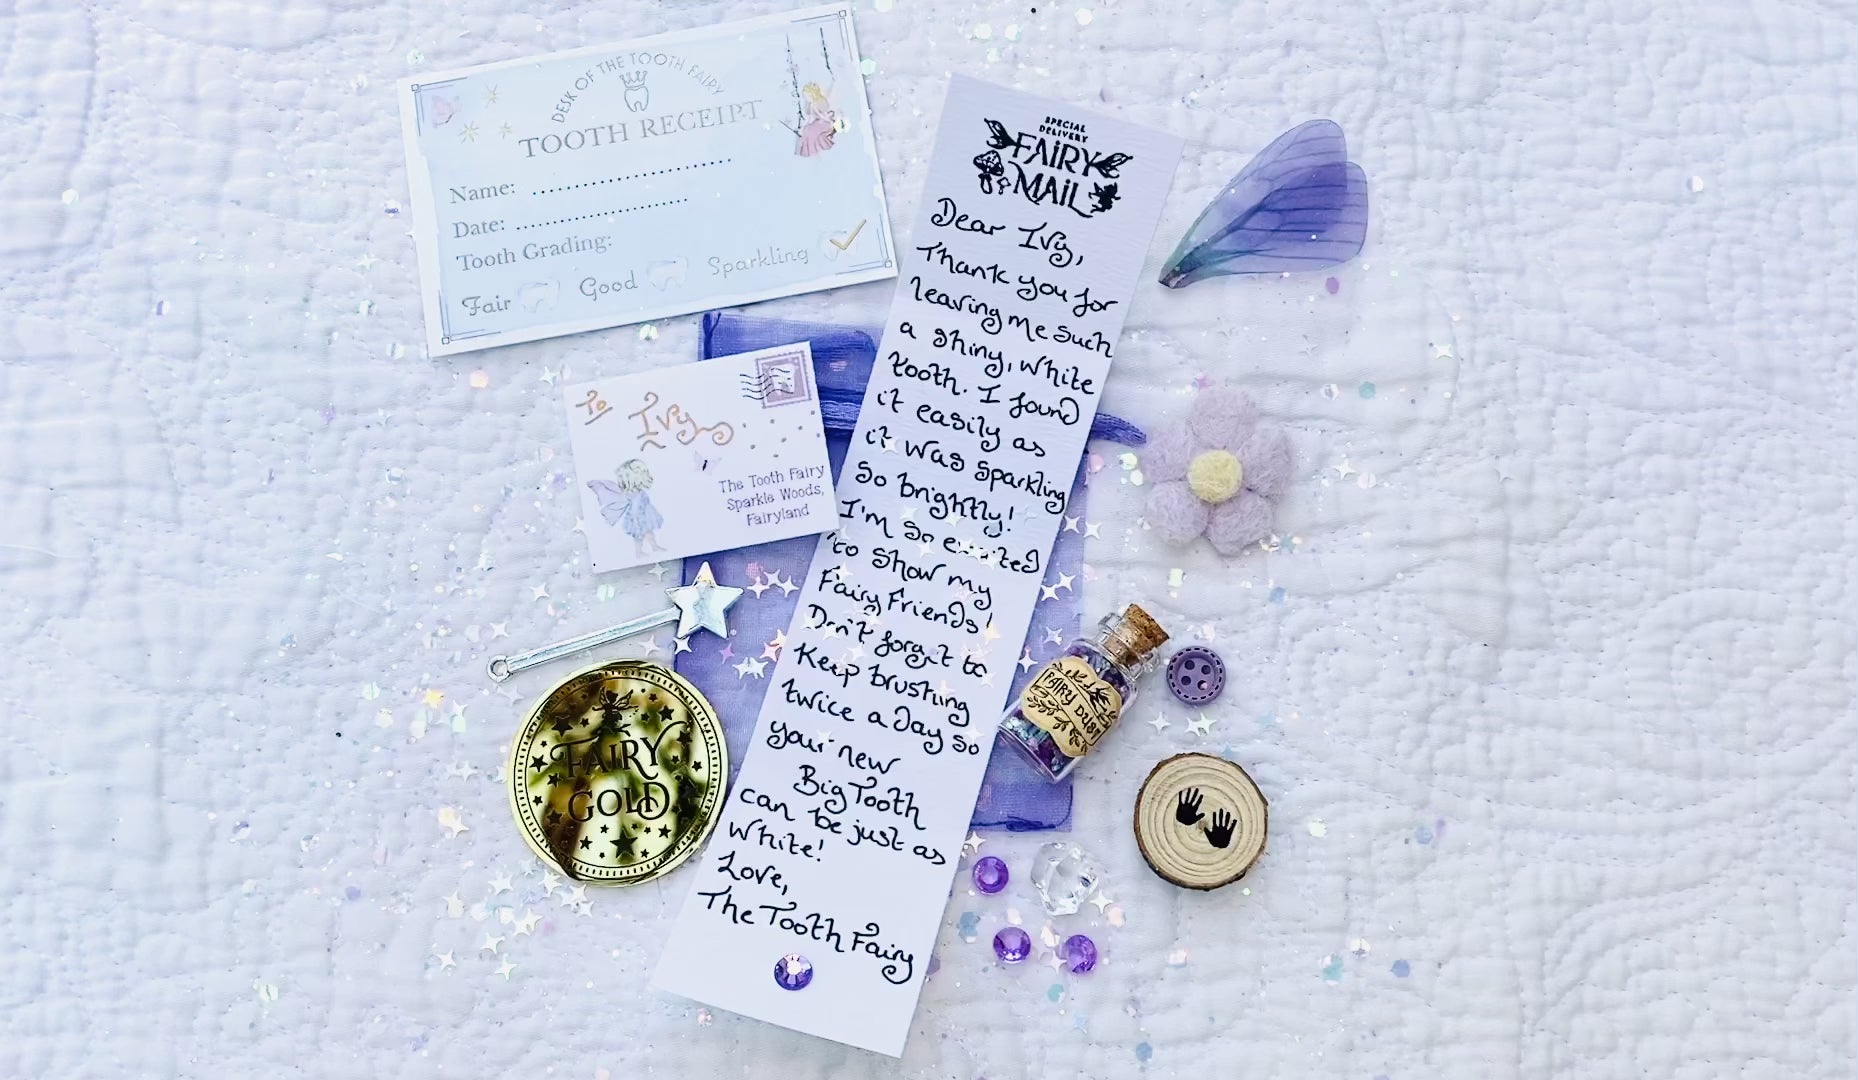 DESK OF THE TOOTH FAIRY
TOOTH RECEIPT
Name: ..............................
Date: .........................
Tooth Grading:
Fair Good Sparkling
To
Ivy
The Tooth Fairy
Sparkle Woods,
Fairyland
SPECIAL
DELIVERY
FAIRY
MAIL
Dear Ivy,
Thank you for
leaving me such
a shiny, white
tooth. I found
it easily as
it was sparkling
so brightly!
I'm so excited
to show my
Fairy Friends!
Don't forget to
Keep brushing
twice a day so
your new
Big Tooth
can be just as
white!
Love,
The Tooth Fairy
FAIRY
GOLD
FAIRY DUST